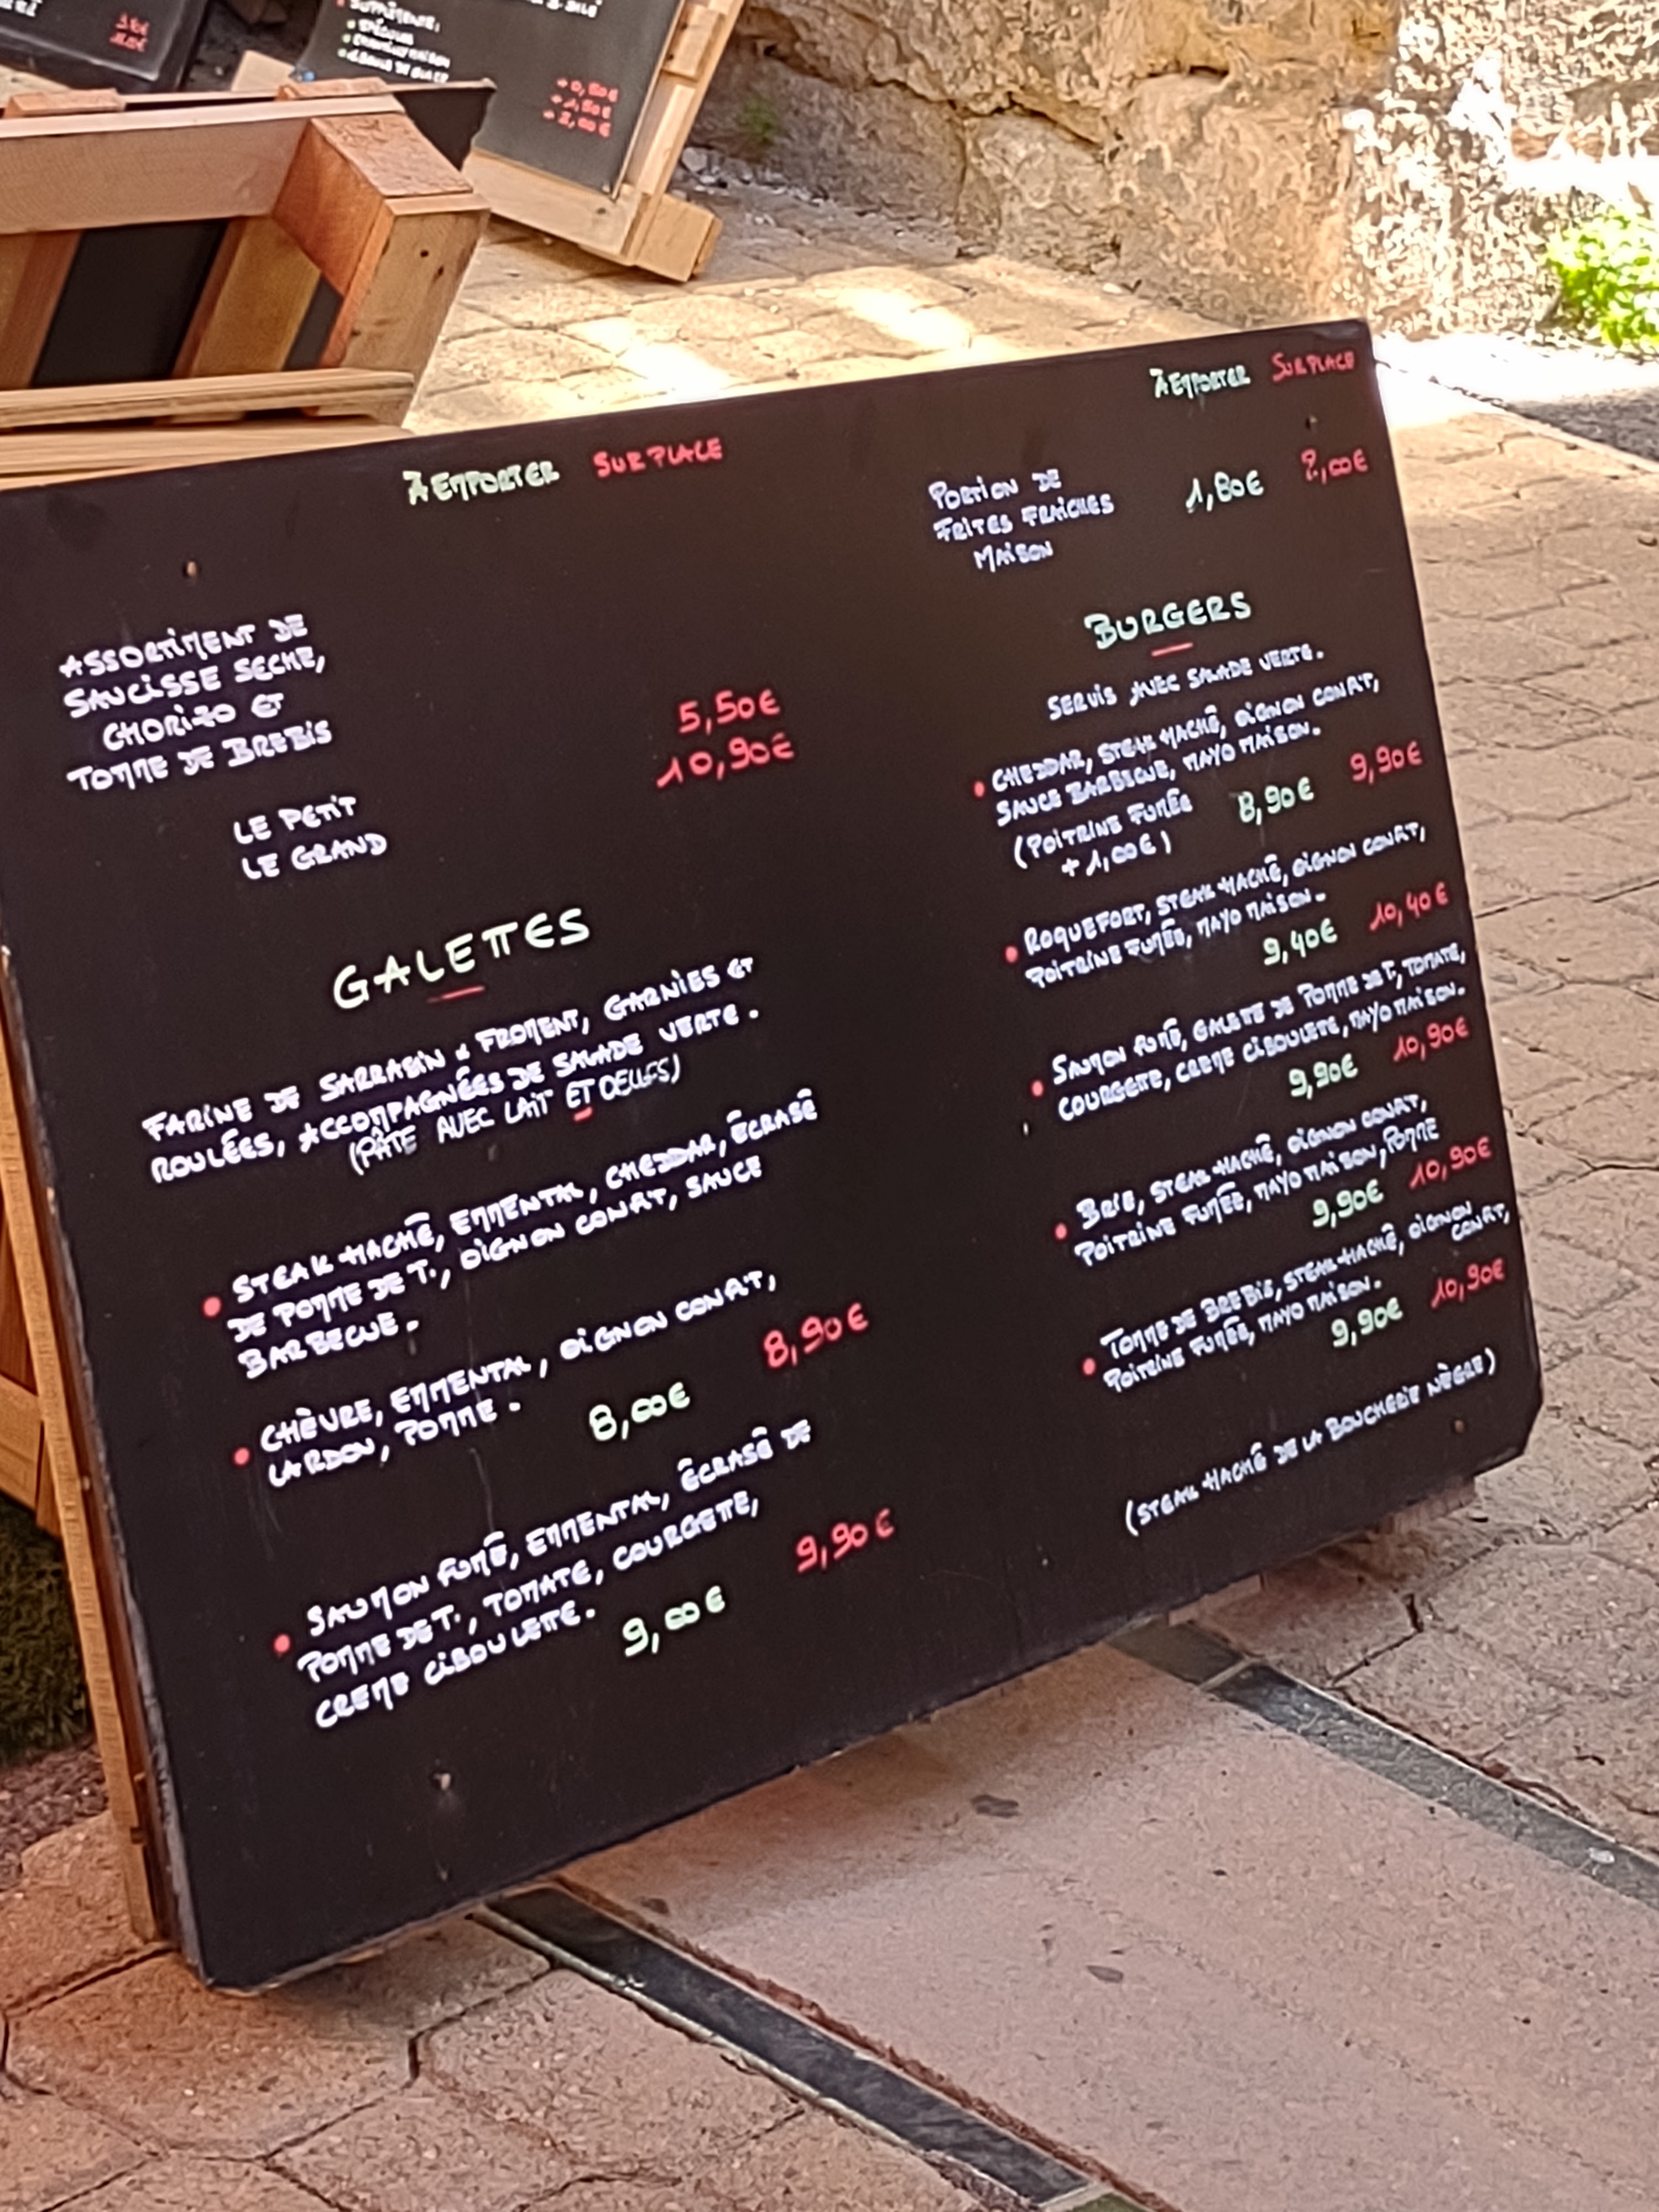 SUPPLÉMENT:
+0,50€
+1,50€
+2,00€
À EMPORTER SUR PLACE
ASSORTIMENT DE
SAUCISSE SECHE,
CHORIZO ET
TOMME DE BREBIS
LE PETIT 5,50€
LE GRAND 10,90€
GALETTES
FARINE DE SARRASIN & FROMENT, GARNIES ET
ROULÉES, ACCOMPAGNÉES DE SALADE VERTE.
(PÂTE AVEC LAIT ET OEUFS)
• STEAK HACHÉ, EMMENTAL, CHEDDAR, ÉCRASÉ
DE POMME DE T., OIGNON CONFIT, SAUCE
BARBECUE.
8,90€
• CHÈVRE, EMMENTAL, OIGNON CONFIT,
LARDON, POMME. 8,00€
9,90€
• SAUMON FUMÉ, EMMENTAL, ÉCRASÉ DE
POMME DE T., TOMATE, COURGETTE,
CREME CIBOULETTE. 9,00€
À EMPORTER SUR PLACE
PORTION DE
FRITES FRAICHES
MAISON
1,80€ 2,00€
BURGERS
SERVIS AVEC SALADE VERTE.
• CHEDDAR, STEAK HACHÉ, OIGNON CONFIT,
SAUCE BARBECUE, MAYO MAISON.
(POITRINE FUMÉE 8,90€ 9,90€
+1,00€)
• ROQUEFORT, STEAK HACHÉ, OIGNON CONFIT,
POITRINE FUMÉE, MAYO MAISON.
9,40€ 10,40€
• SAUMON FUMÉ, GALETTE DE POMME DE T, TOMATE,
COURGETTE, CREME CIBOULETTE, MAYO MAISON.
9,90€ 10,90€
• BRIE, STEAK HACHÉ, OIGNON CONFIT,
POITRINE FUMÉE, MAYO MAISON, POMME
9,90€ 10,90€
• TOMME DE BREBIS, STEAK HACHÉ, OIGNON
CONFIT,
POITRINE FUMÉE, MAYO MAISON.
9,90€ 10,90€
(STEAK HACHÉ DE LA BOUCHERIE NÈGRE)